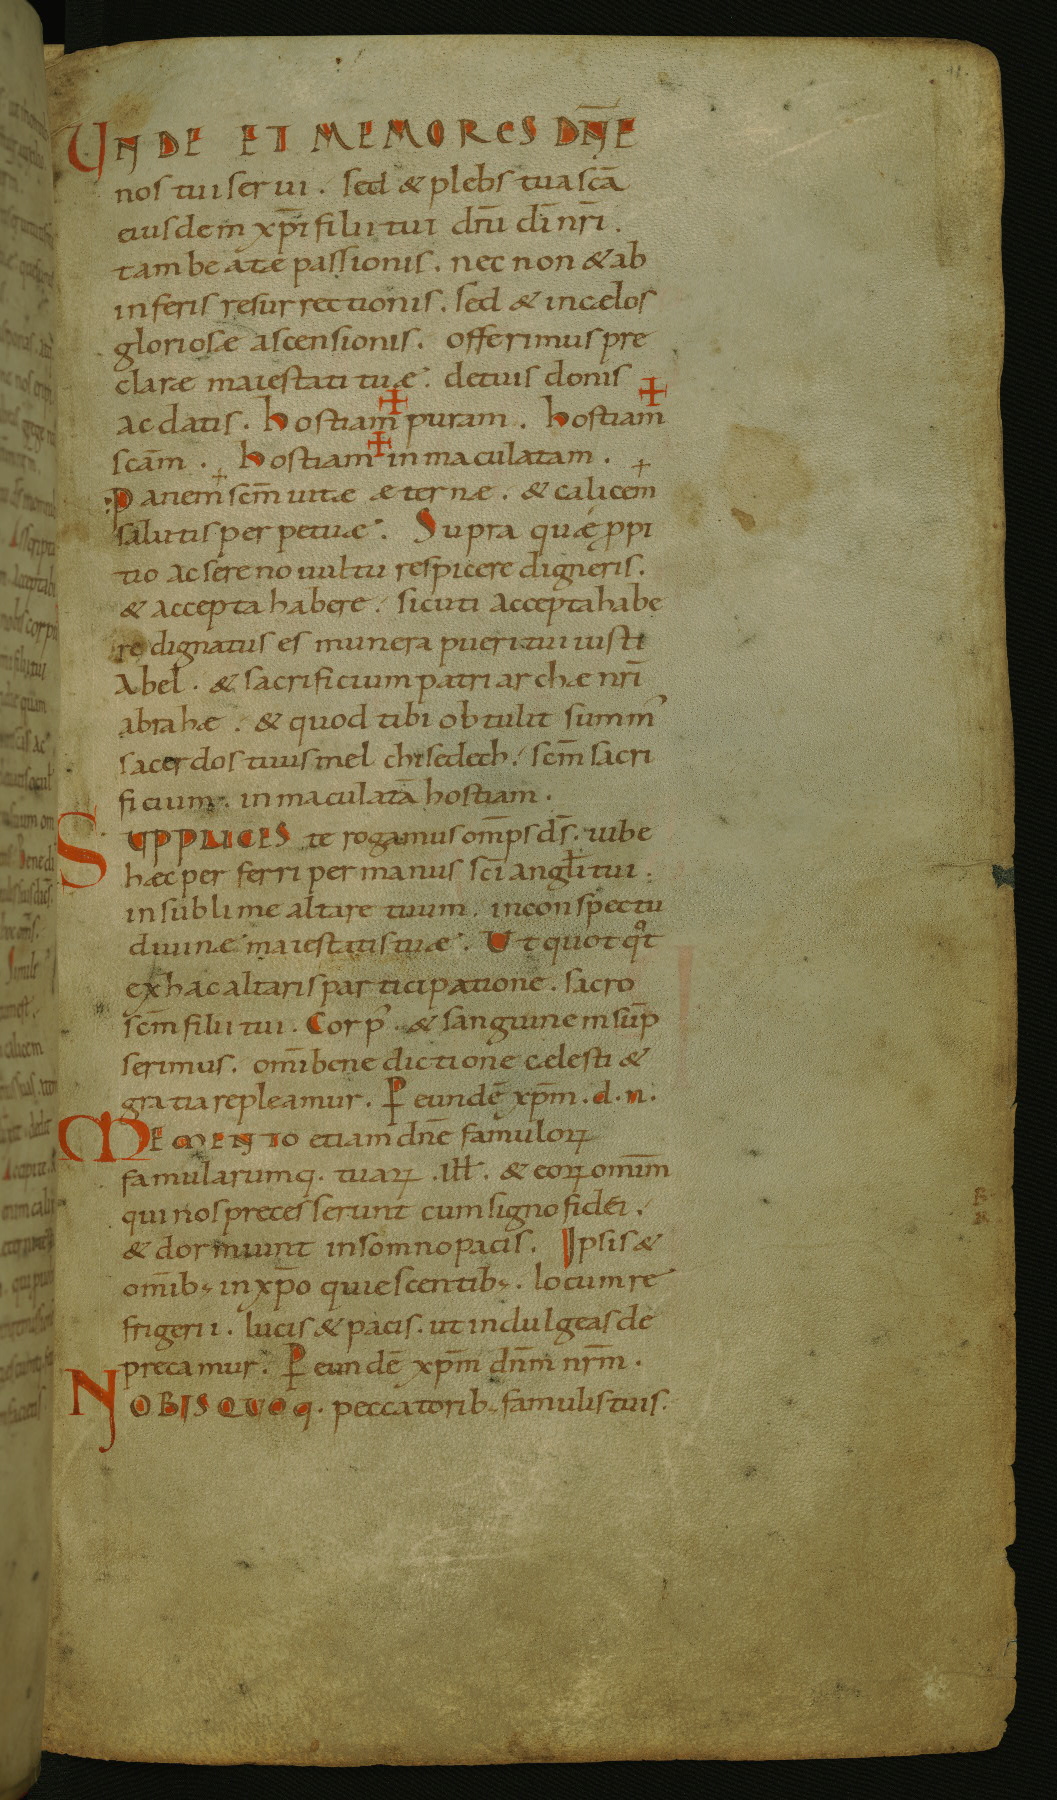 UNDE ET MEMORES DN̄E
nos tui serui . sed & plebs tua scā
eiusdem xp̄i filii tui dn̄i dī nr̄i .
tam beatæ passionis . nec non & ab
inferis resurrectionis . sed & in cælos
gloriosæ ascensionis . offerimus pre
claræ maiestati tuæ . de tuis donis
ac datis . hostiam ✠ puram . hostiam ✠
scām . hostiam ✠ inmaculatam .
Panem + scm̄ uitæ æternæ . & calicem +
salutis perpetuæ . Supra quæ ꝓpi
tio ac sereno uultu respicere digneris .
& accepta habere . sicuti accepta habe
re dignatus es munera pueri tui iusti
Abel . & sacrificium patriarchæ nr̄i
abrahæ . & quod tibi obtulit summ᾽
sacerdos tuus melchisedech . scm̄ sacri
ficium . inmaculatā hostiam .
SUPPLICES te rogamus om̄ps ds̄ . iube
hæc perferri per manus scī angłi tui .
in sublime altare tuum . in conspectu
diuinæ maiestatis tuæ . Ut quotqͦt
ex hac altaris participatione . sacro
scm̄ filii tui . Corp᾽ . & sanguinem sūp
serimus . om̄i benedictione cælesti &
gratia repleamur . P eundē xp̄m . d . n .
MEMENTO etiam dn̄e famuloꝝ
famularumq . tuaꝝ . ill̄ . & eoꝝ omiūm
qui nos precesserunt cum signo fidei .
& dormiunt in somno pacis . Ipsis &
om̄ib; in xp̄o quiescentib; . locum re
frigerii . lucis & pacis . ut indulgeas de
precamur . P eundē xp̄m dn̄m nr̄m .
NOBIS QUOQ . peccatorib; famulis tuis .